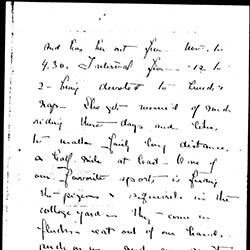 and has her art from two to
4.30. Interval from 12 to
2 - being devoted to lunch &
nap. She gets wearied of much
riding these days and likes
to walk fairly long distance
a half mile at least. One of
our favorite sports is feeding
the pigeons & squirrels in the
college yard. They come in
flocks & eat out of our hands,